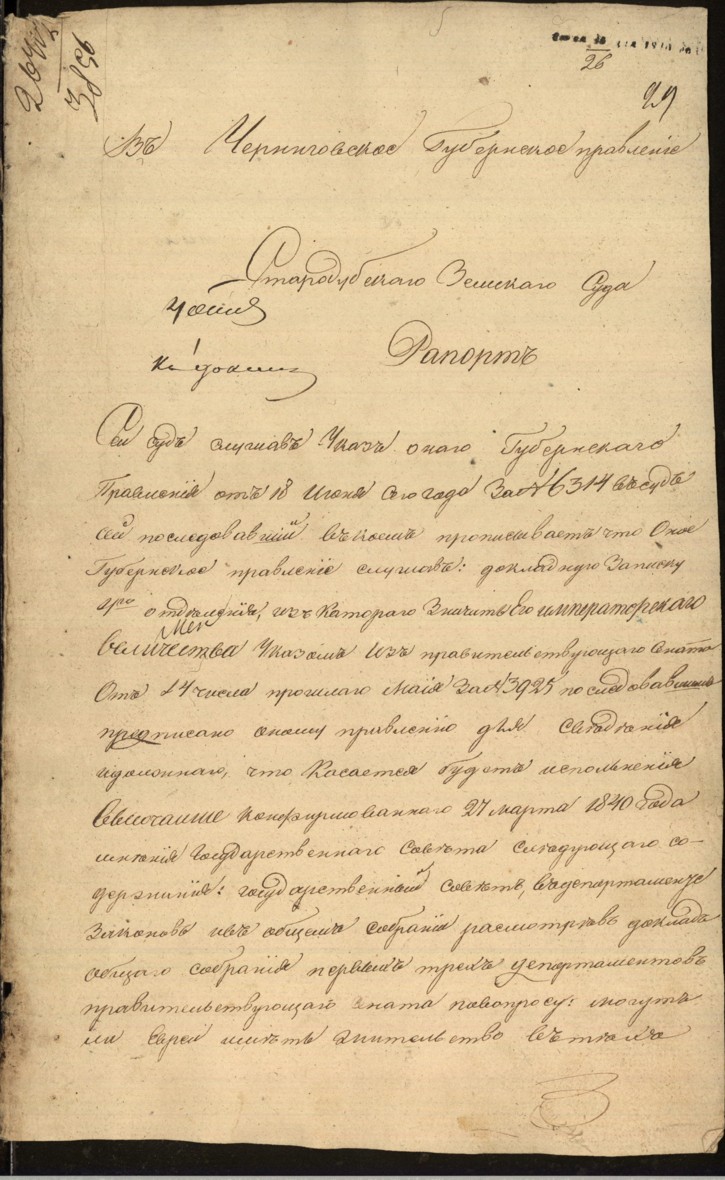 26
29
Въ Черниговское Губернское правленіе
Стародубскаго Земскаго Суда
Рапортъ
Сей судъ слушавъ Указъ онаго Губернскаго
Правленія отъ 18 Июня сего года За № 6314 въ судъ
сей последовавшій въ коемъ прописываетъ что Оное
Губернское правленіе слушавъ: докладную Записку
4го отделенія, изъ Катораго Значитъ Его императорскаго
величества Указомъ Изъ правительствующаго Сената
Отъ 14 числа прошлаго Маія За № 3925 последовавшимъ
предписано оному правленію для сведенія
и должнаго, что Касается будетъ исполненія
Высочайше конфирмованнаго 27 марта 1840 Года
мненія Государственнаго Совета следующаго со-
держанія: государственный советъ, въ департаменте
Законовъ и въ общемъ собраніи расмотревъ докладъ
общаго собранія первыхъ трехъ департаментовъ
правительствующаго сената повопросу: могутъ
ли Евреи иметь жительство въ техъ